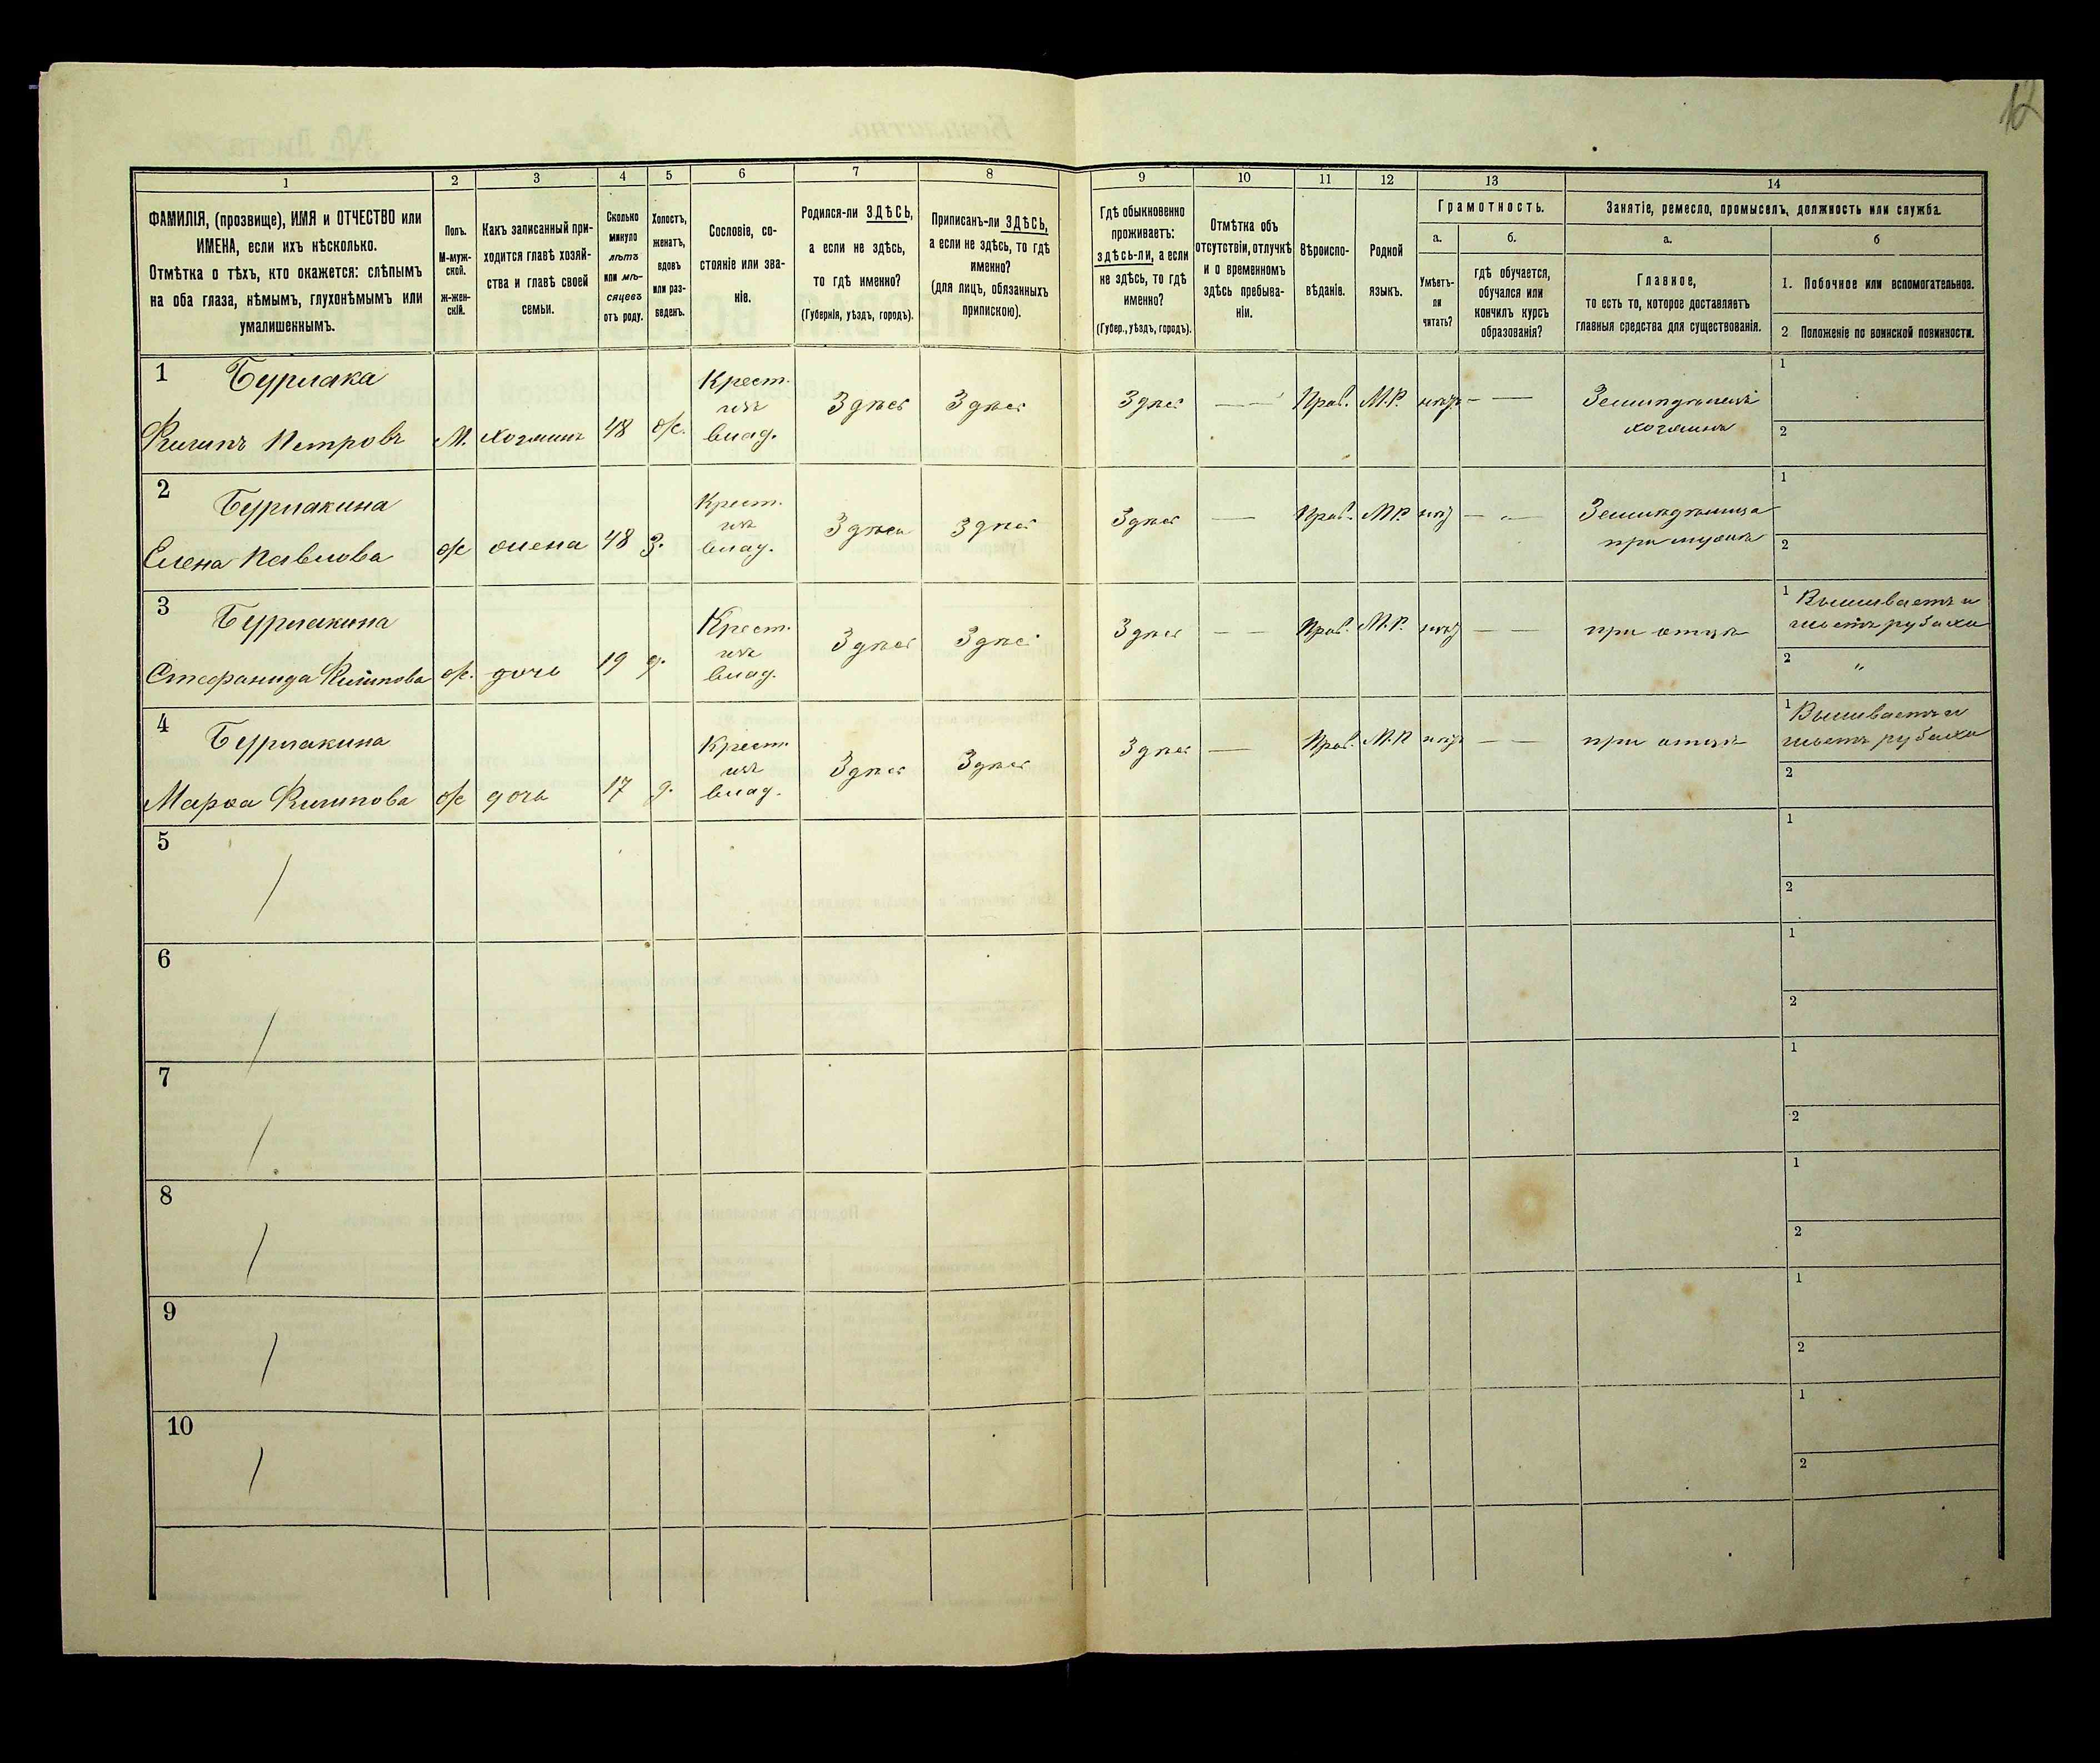 12
1
2
3
4
5
6
7
8
9
10
11
12
13
14
ФАМИЛІЯ, (прозвище), ИМЯ и ОТЧЕСТВО или
ИМЕНА, если ихъ нѣсколько.
Отмѣтка о тѣхъ, кто окажется: слѣпымъ
на оба глаза, нѣмымъ, глухонѣмымъ или
умалишеннымъ.
Полъ.
М-муж-
ской.
ж-жен-
скій.
Какъ записанный при-
ходится главѣ хозяй-
ства и главѣ своей
семьи.
Сколько
минуло
лѣтъ
или мѣ-
сяцевъ
отъ роду.
Холостъ,
женатъ,
вдовъ
или раз-
веденъ.
Сословіе, со-
стояніе или зва-
ніе.
Родился-ли ЗДѢСЬ,
а если не здѣсь,
то гдѣ именно?
(Губернія, уѣздъ, городъ).
Приписанъ-ли ЗДѢСЬ,
а если не здѣсь, то гдѣ
именно?
(для лицъ, обязанныхъ
припискою).
Гдѣ обыкновенно
проживаетъ:
здѣсь-ли, а если
не здѣсь, то гдѣ
именно?
(Губер., уѣздъ, городъ).
Отмѣтка объ
отсутствіи, отлучкѣ
и о временномъ
здѣсь пребыва-
ніи.
Вѣроиспо-
вѣданіе.
Родной
языкъ.
Грамотность.
а.
Умѣетъ-
ли
читать?
б.
гдѣ обучается,
обучался или
кончилъ курсъ
образованія?
Занятіе, ремесло, промыселъ, должность или служба.
а.
Главное,
то есть то, которое доставляетъ
главныя средства для существованія.
б
1. Побочное или вспомогательное.
2 Положеніе по воинской повинности.
1 Бурлака
Филипъ Петровъ М. хозяинъ 48 ж. Крест.
изъ
влад. Здѣсь Здѣсь Здѣсь — Прав. М.Р. нѣтъ — — Земледѣлецъ
хозяинъ
1
2
2 Бурлакина
Елена Павлова ж жена 48 З. Крест.
изъ
влад. Здѣсь Здѣсь Здѣсь — Прав. М.Р. нѣтъ — — Земледѣлица
при мужѣ
1
2
3 Бурлакина
Стефанида Филипова ж. дочь 19 д. Крест.
изъ
влад. Здѣсь Здѣсь Здѣсь — — Прав. М.Р. нѣтъ — — при отцѣ
1 Вышиваетъ и
шьетъ рубахи
2 "
4 Бурлакина
Марфа Филипова ж дочь 17 д. Крест.
изъ
влад. Здѣсь Здѣсь Здѣсь — Прав. М.Р. нѣтъ — — при отцѣ
1 Вышиваетъ и
шьетъ рубахи
2
5 / 1
2
6 / 1
2
7 / 1
2
8 / 1
2
9 / 1
2
10 / 1
2